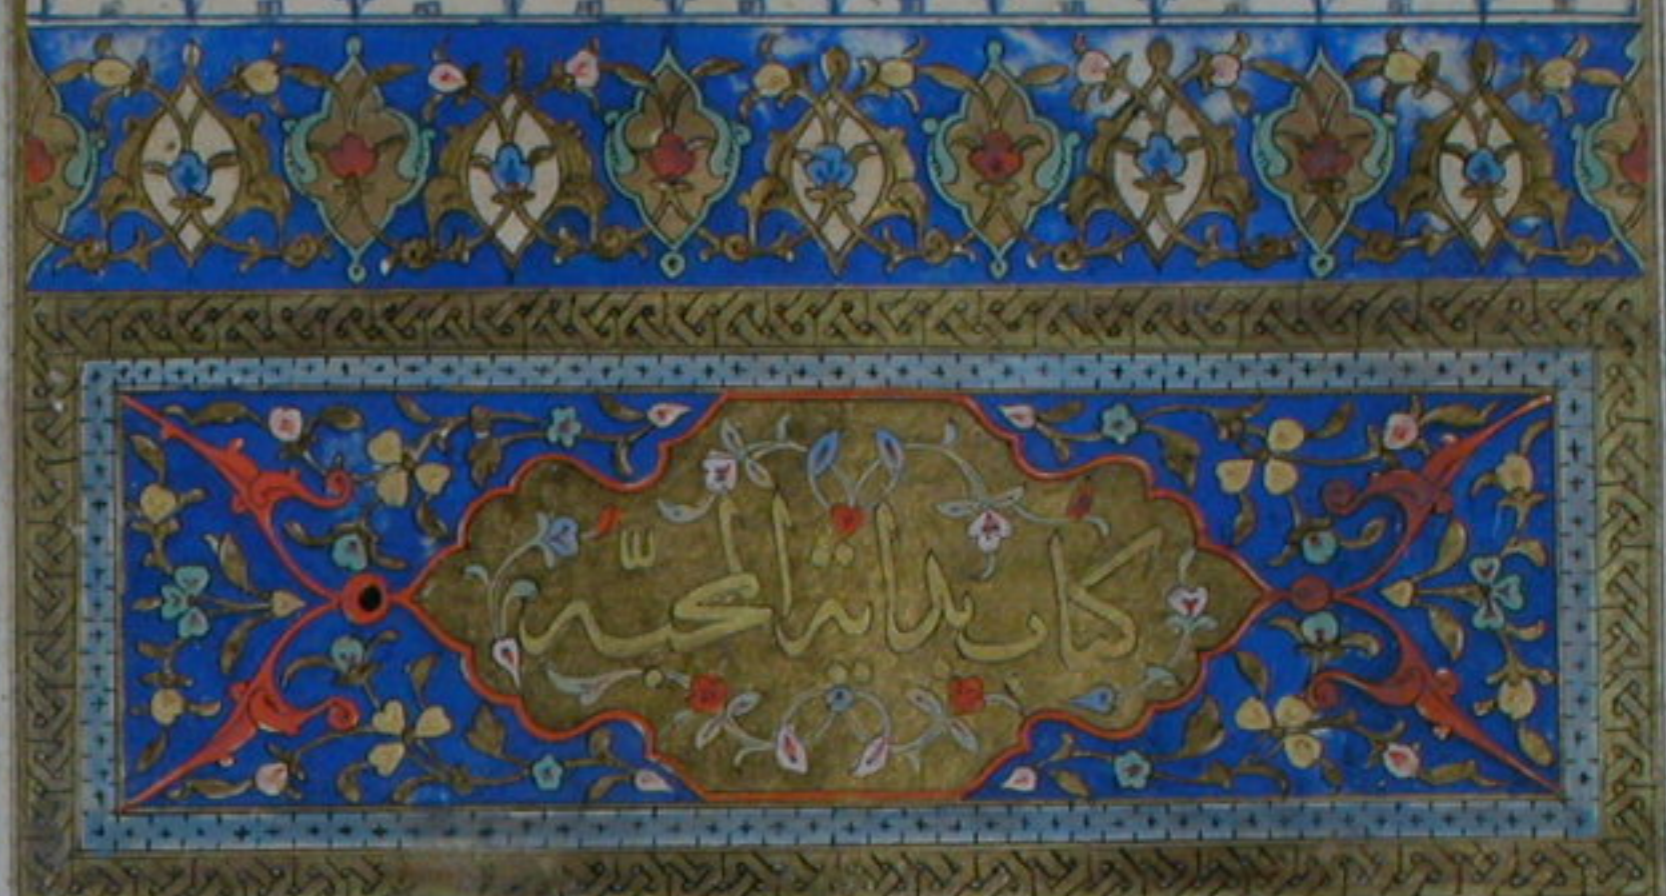 كتاب بداية المحبّه